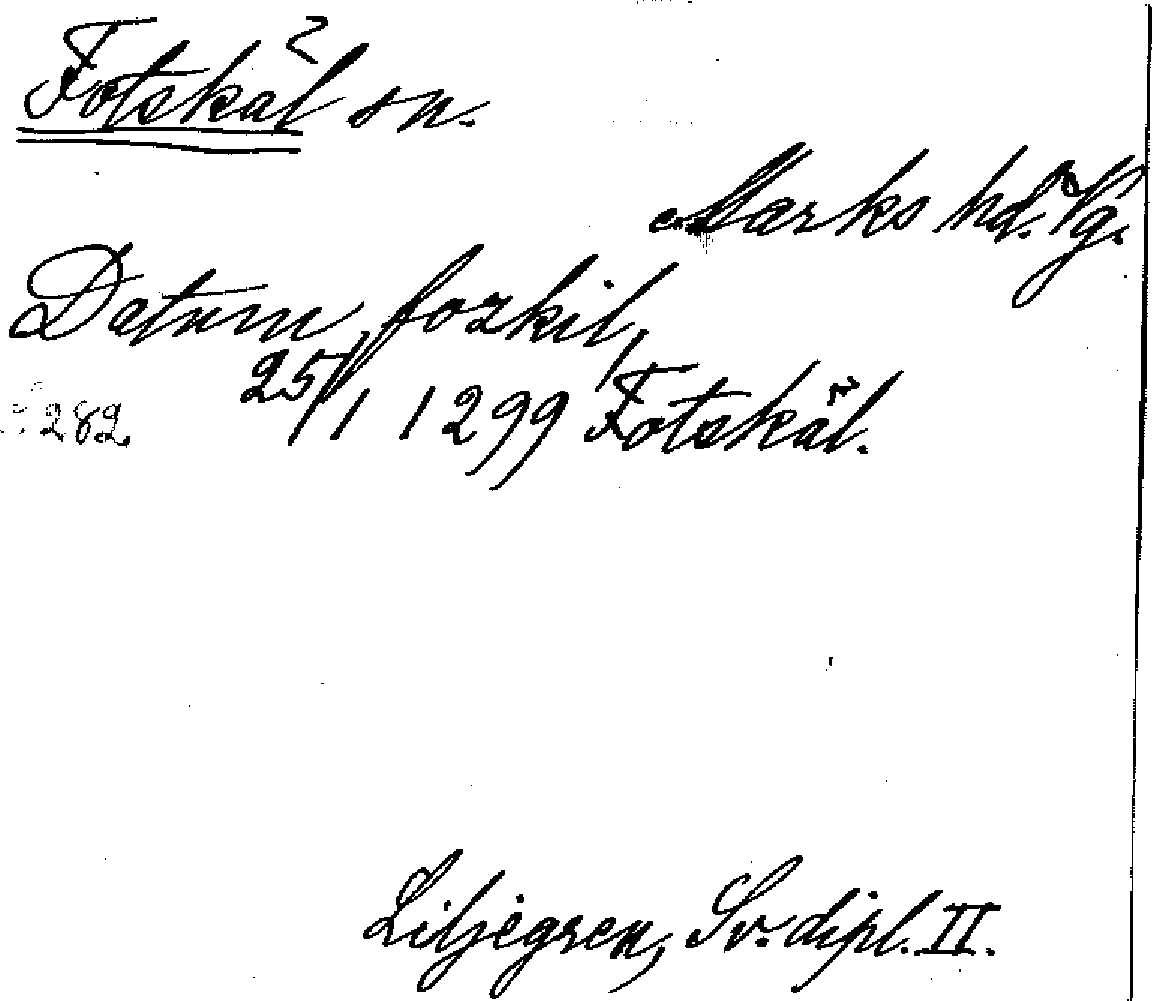 Fotskäl sn.
Marks hd. Vg.
Datum fozkil,
25/1 1299 Fotskäl.
282
Liljegren, Sv. dipl. II.